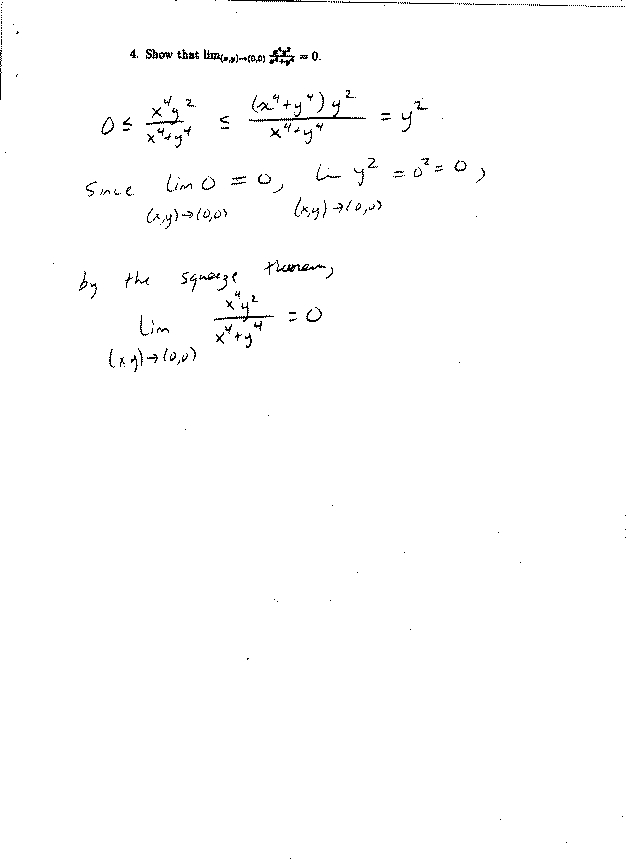 4. Show that lim(x,y)→(0,0) x⁴y²/x⁴+y⁴ = 0.
0 ≤ x⁴y²/x⁴+y⁴ ≤ (x⁴+y⁴)y²/x⁴+y⁴ = y²
Since lim 0 = 0, lim y² = 0² = 0,
(x,y)→(0,0) (x,y)→(0,0)
by the squeeze theorem,
Lim x⁴y²/x⁴+y⁴ = 0
(x,y)→(0,0)